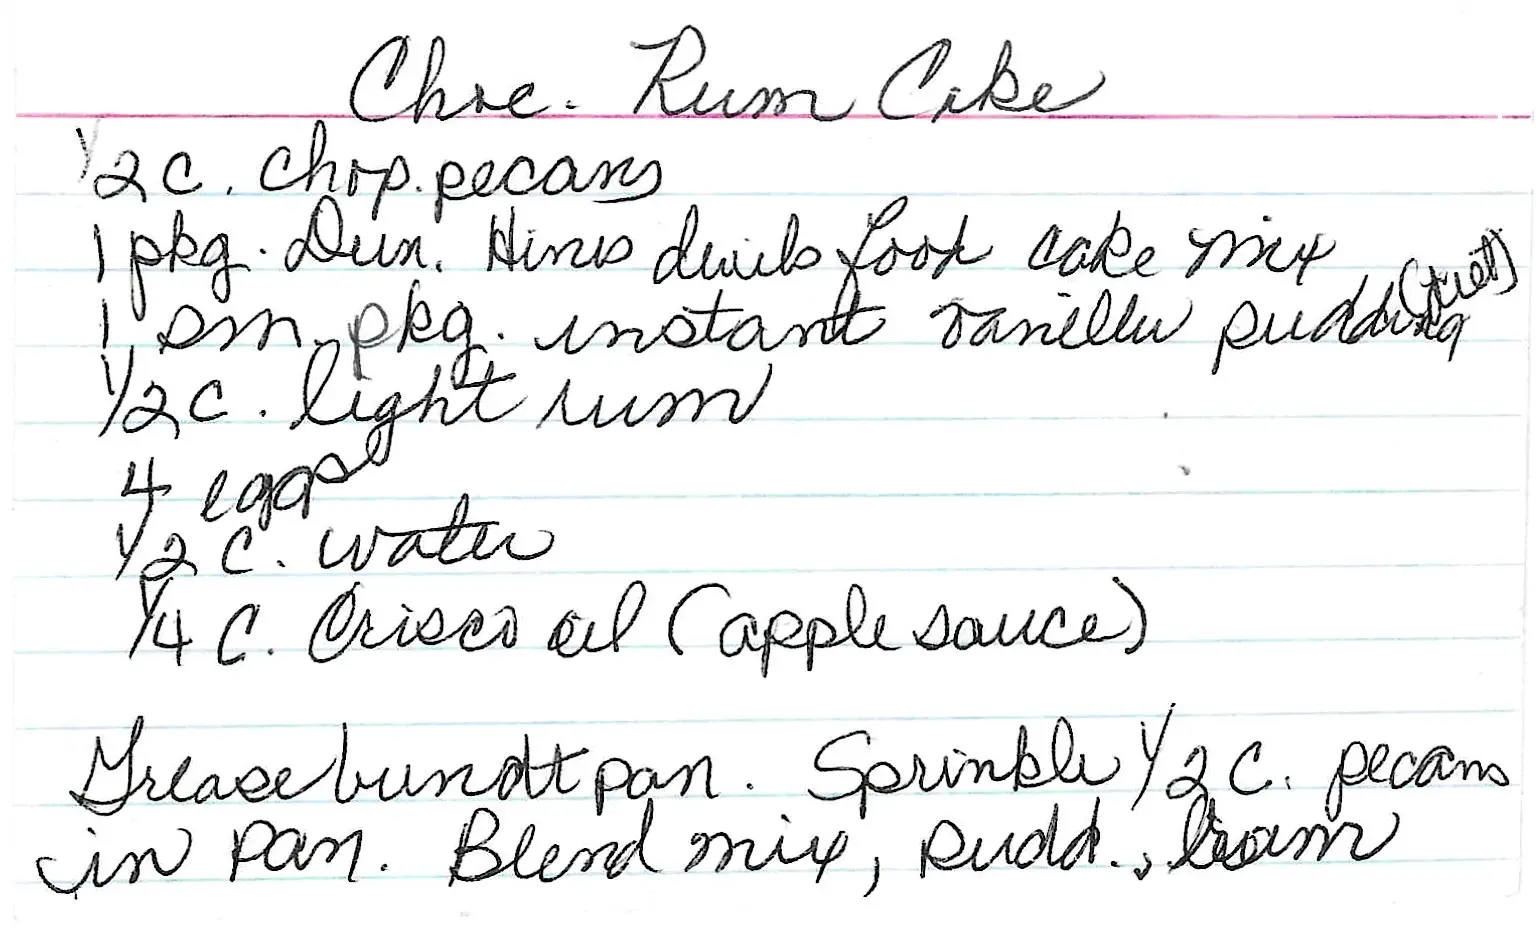 Choc. Rum Cake
1/2 C. chop. pecans
1 pkg. Dun. Hines devils food cake mix
1 sm. pkg. instant vanilla pudding (diet)
1/2 C. light rum
4 eggs
1/2 C. water
1/4 C. Crisco oil (apple sauce)
Grease bundt pan. Sprinkle 1/2 C. pecans
in pan. Blend mix, pudd.,